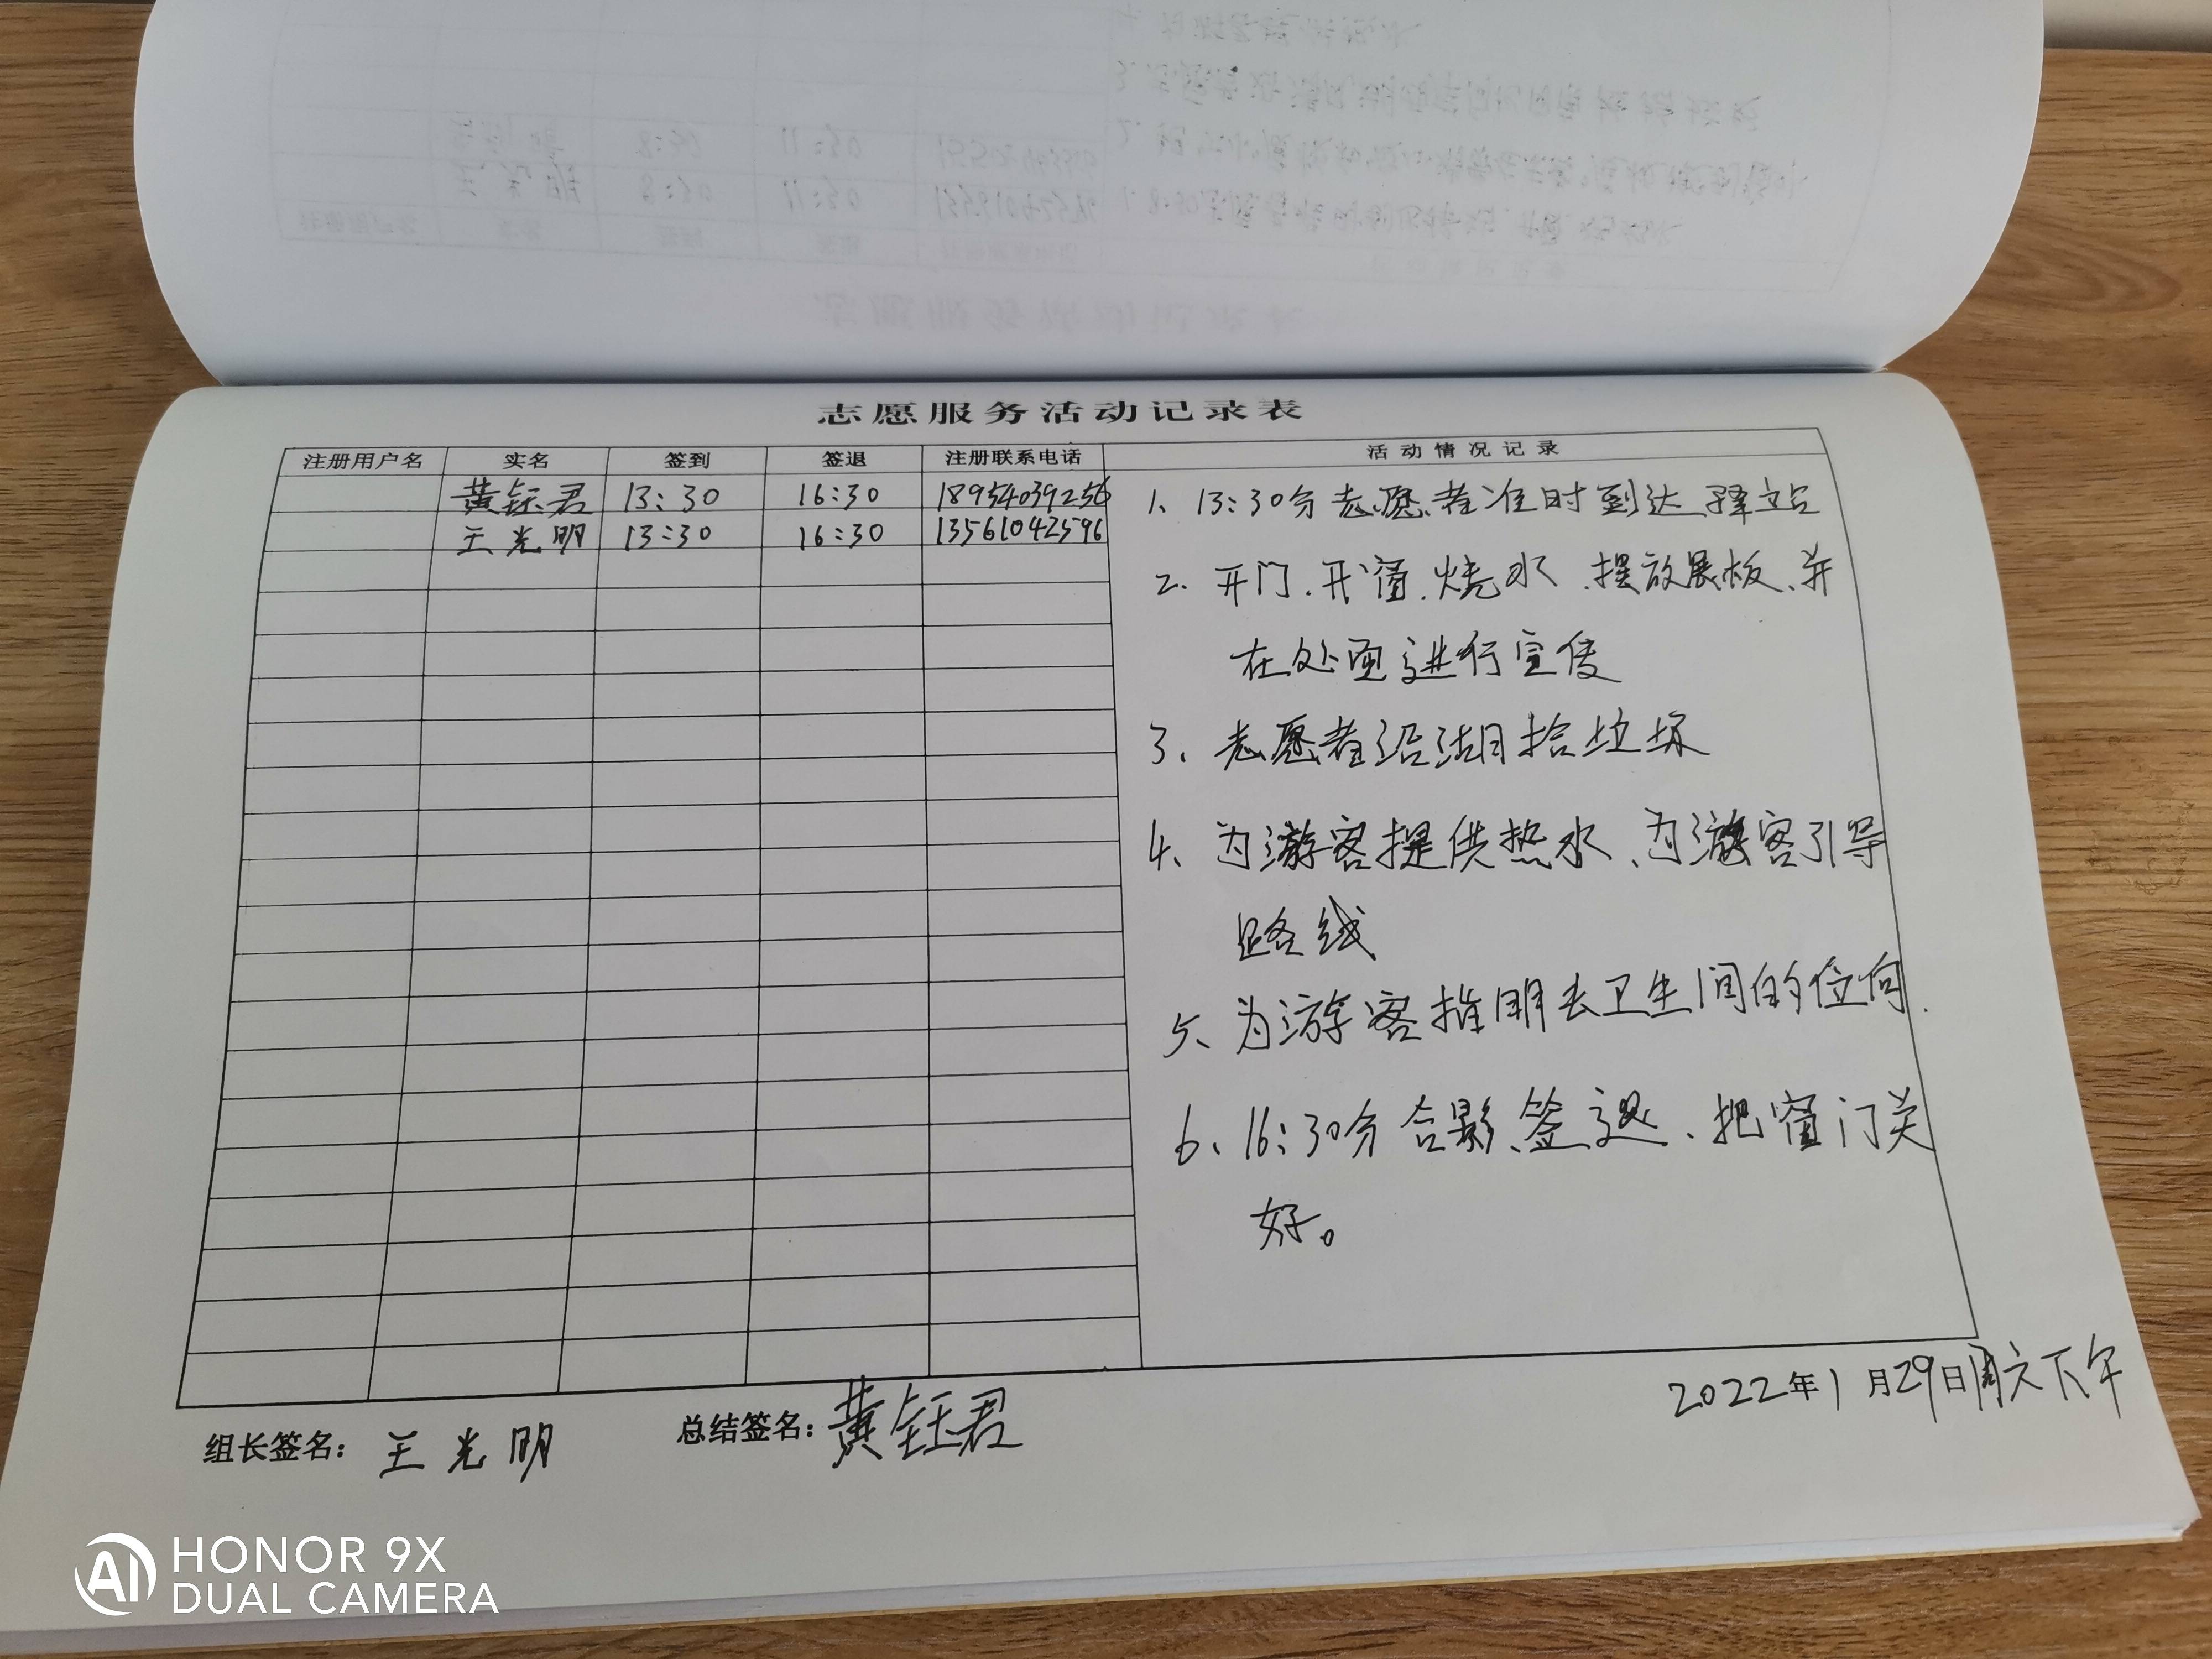 志愿服务活动记录表
注册用户名 实名 签到 签退 注册联系电话 活动情况记录
黄钰君 13:30 16:30 18954039256
王光明 13:30 16:30 13561042596
1、13:30分志愿者准时到达驿站
2、开门、开窗、烧水、摆放展板、并
在处面进行宣传
3、志愿者沿湖拾垃圾
4、为游客提供热水、为游客引导
路线
5、为游客指明去卫生间的位向.
6、16:30分合影、签退、把窗门关
好。
2022年1月29日周六下午
组长签名：王光明 总结签名：黄钰君
HONOR 9X
DUAL CAMERA